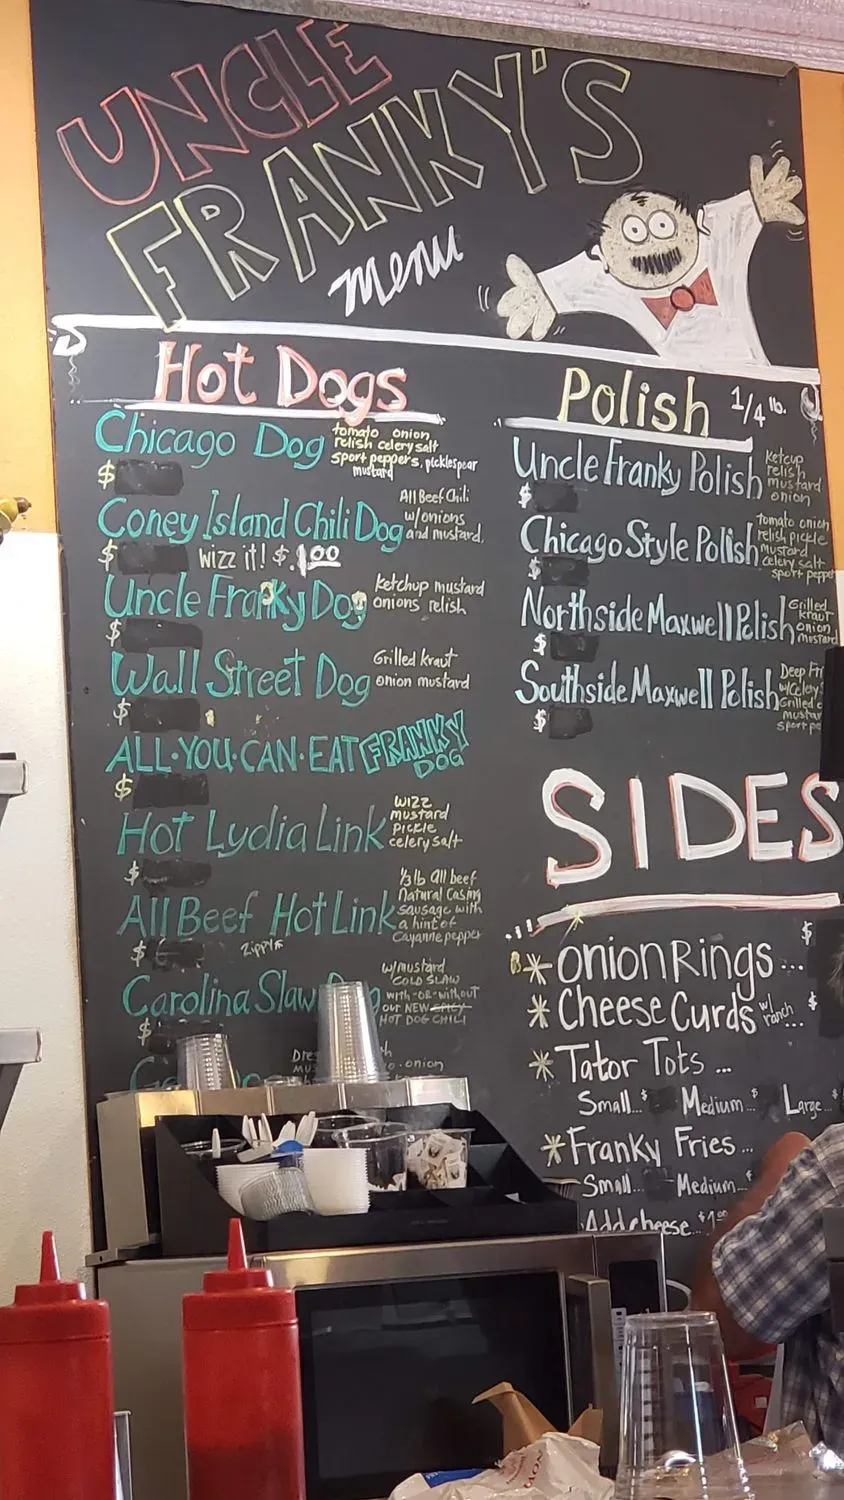 UNCLE
FRANKY'S
menu
Hot Dogs
Chicago Dog
tomato onion
relish celery salt
sport peppers, pickle spear
mustard
$
Coney Island Chili Dog
All Beef Chili
w/onions
and mustard.
$ wizz it! $.1.00
Uncle Franky Dog
Ketchup mustard
onions relish
$
Wall Street Dog
Grilled kraut
onion mustard
$
ALL·YOU·CAN·EAT FRANKY
DOG
$
Hot Lydia Link
wizz
mustard
pickle
celery salt
$
All Beef Hot Link
1/3 lb all beef
Natural Casing
sausage with
a hint of
Cayanne pepper
$ Zippy
Carolina Slaw
w/mustard
COLD SLAW
with -OR- without
our NEW SPICY
HOT DOG CHILI
$
onion
Polish 1/4 lb.
Uncle Franky Polish
Ketcup
relish
mustard
onion
$
Chicago Style Polish
tomato onion
relish pickle
mustard
celery salt
sport peppe
$
Northside Maxwell Polish
Grilled
kraut
onion
mustard
$
Southside Maxwell Polish
Deep Fri
w/Celery
Grilled
mustar
sport pe
$
SIDES
$
onion Rings ...
Cheese Curds w/ ranch ... $
Tator Tots ...
Small...$ Medium...$ Large...$
Franky Fries ...
Small... Medium...$
Add cheese...$1.00